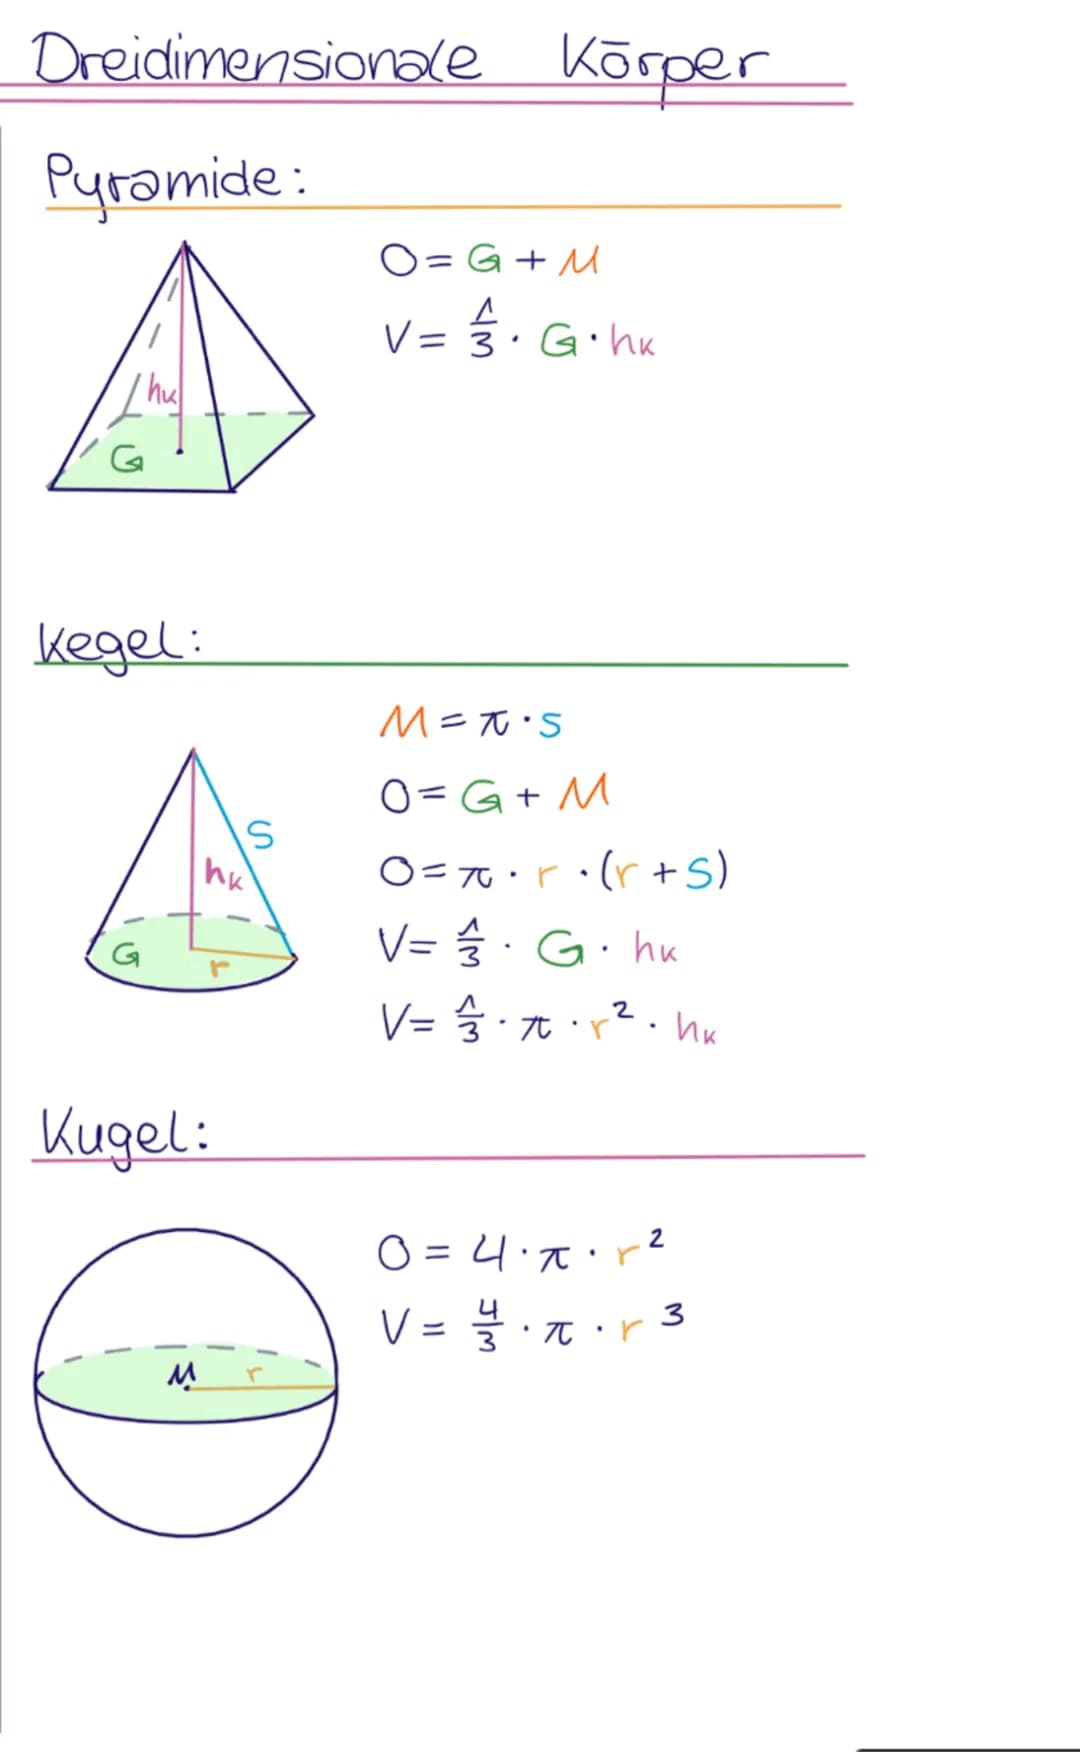 Dreidimensionale Körper
Pyramide:
O = G + M
V = 1/3 · G · hк
hк
G
Kegel:
M = π · s
O = G + M
S
O = π · r · (r + S)
hк
V = 1/3 · G · hк
G
r
V = 1/3 · π · r² · hк
Kugel:
O = 4 · π · r²
V = 4/3 · π · r³
M r